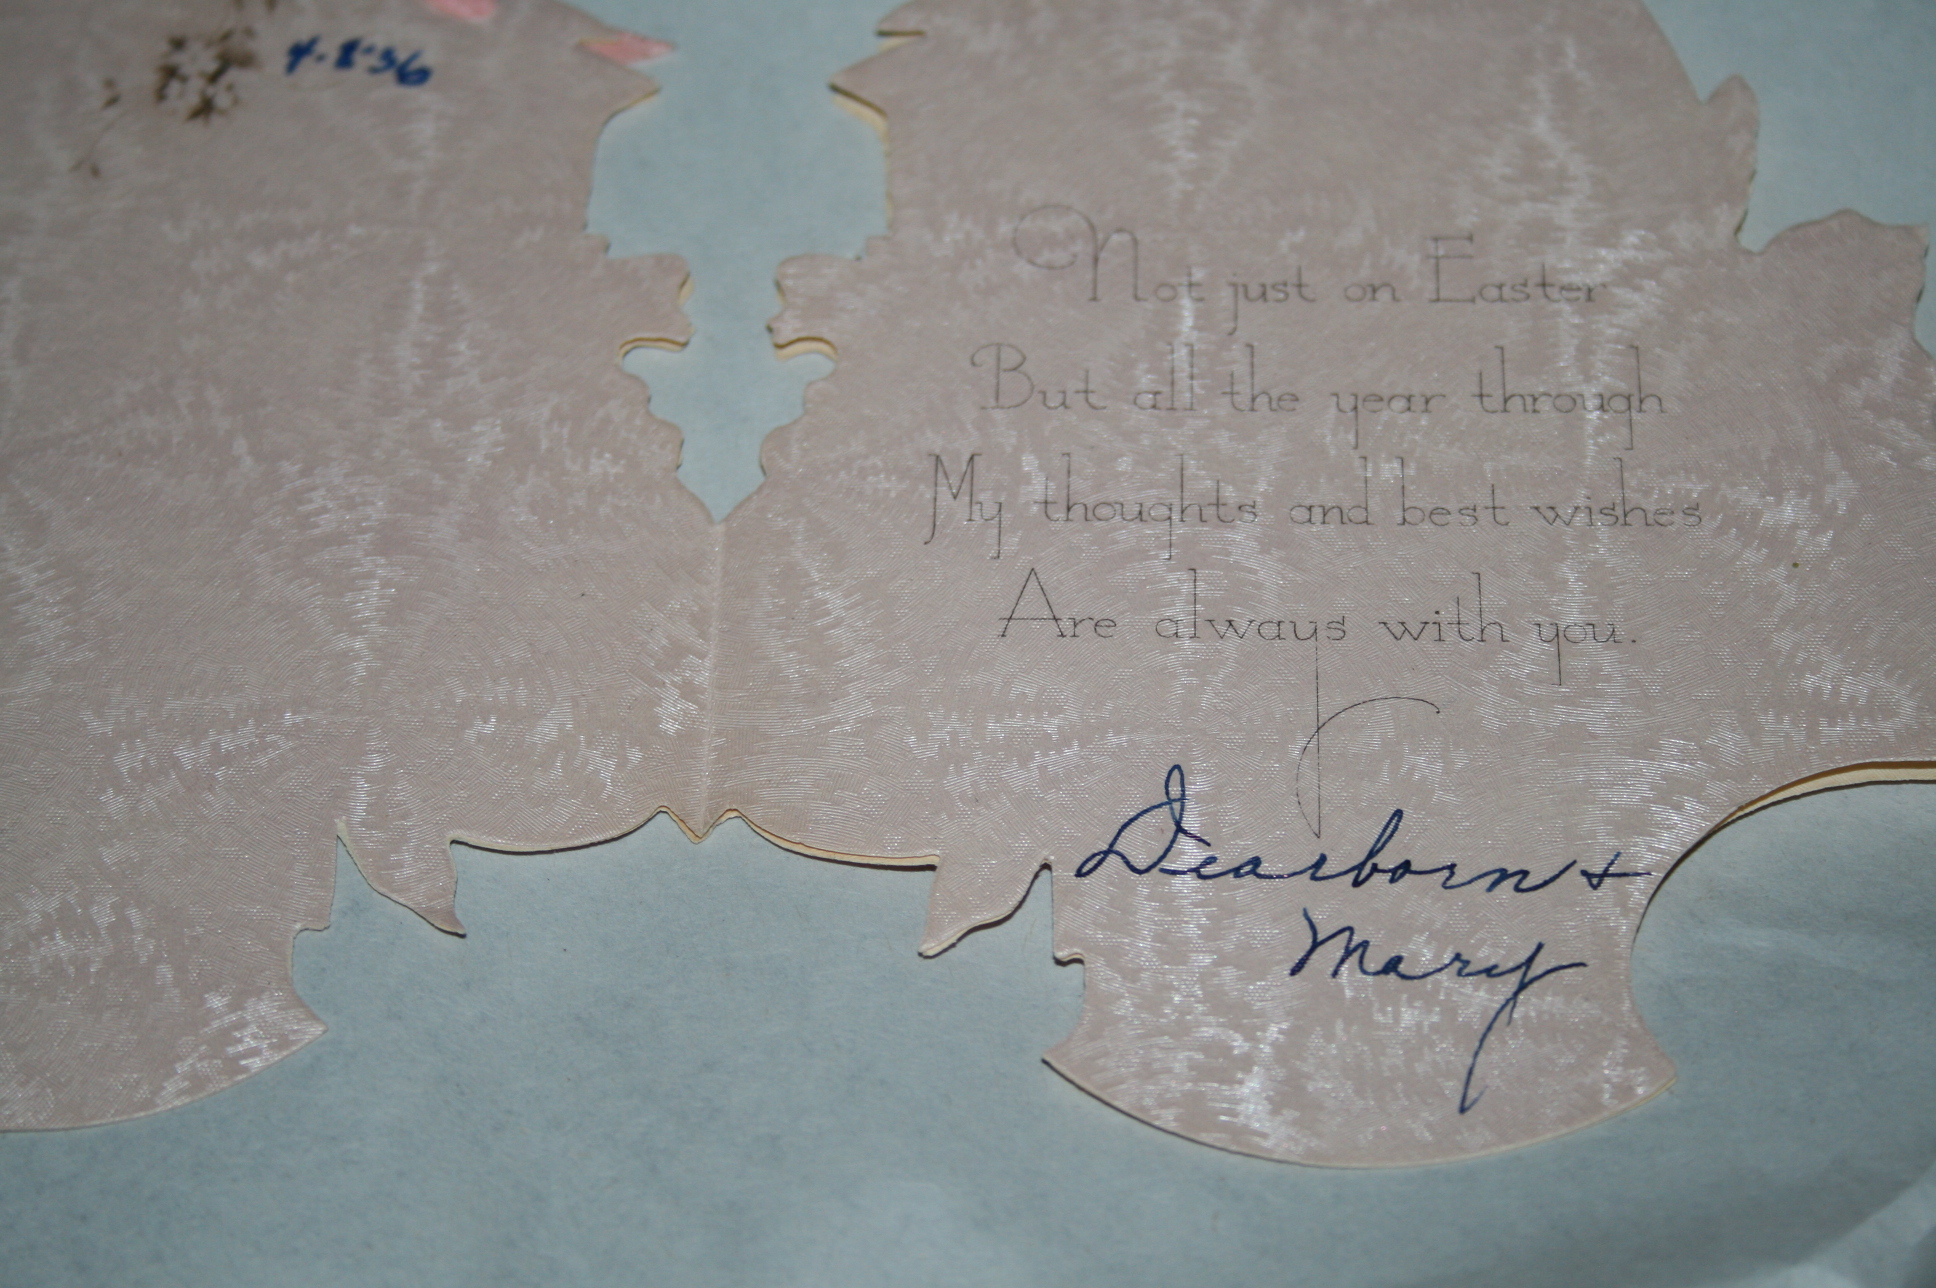 4-8-36
Not just on Easter
But all the year through
My thoughts and best wishes
Are always with you.
Dearborn +
Mary